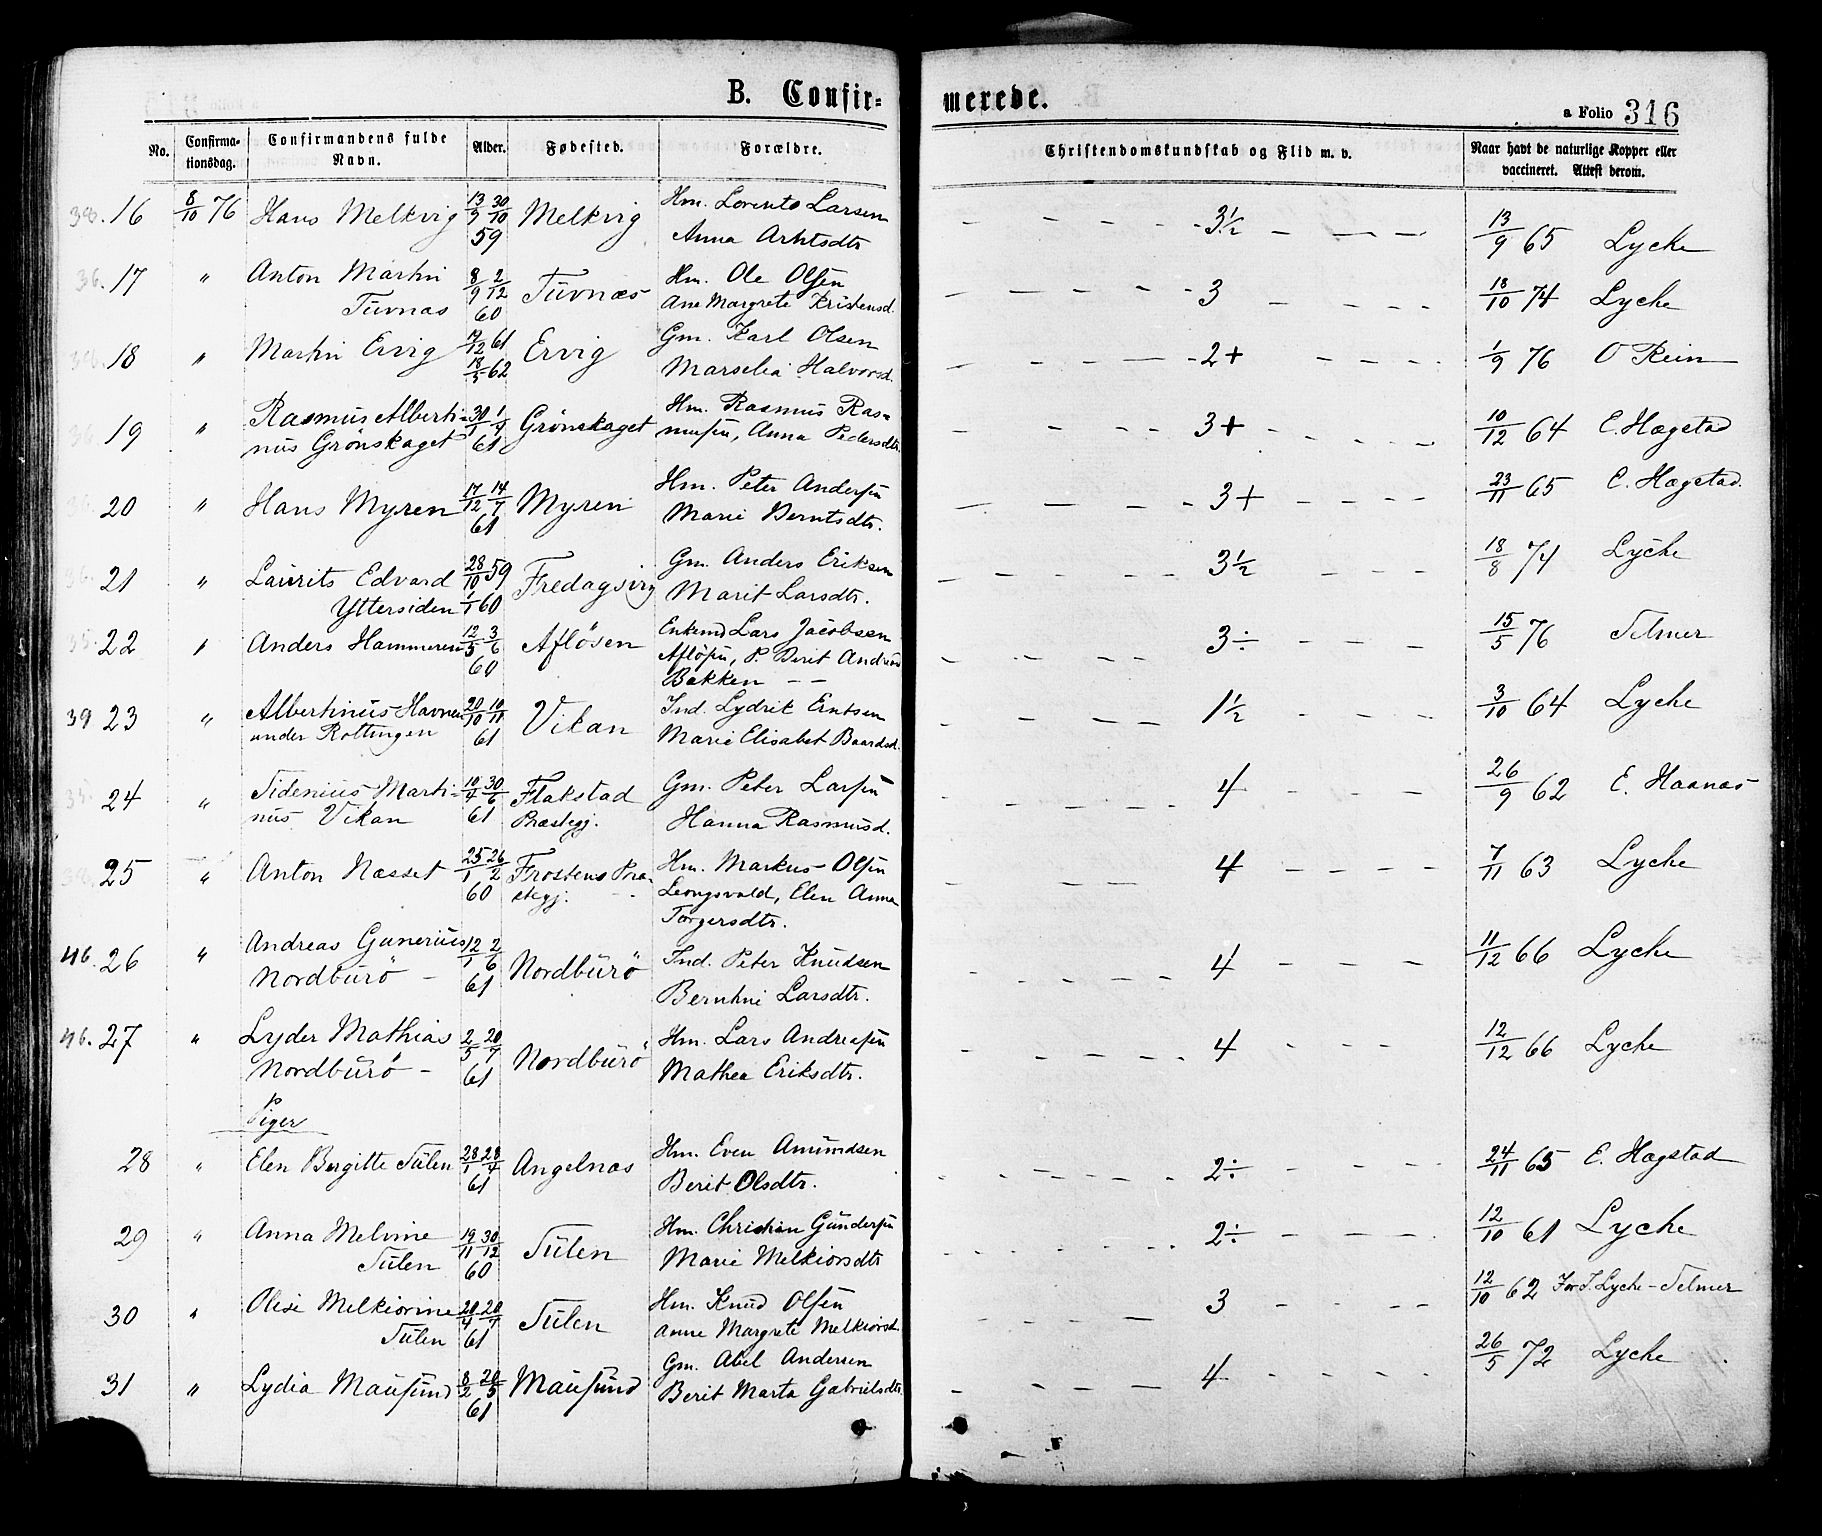 B. Confir= merede.
a Folio 316
No. Confirma-tionsdag. Confirmandens fulde Navn. Alder. Fødested. Forældre. Christendomskundskab og Flid m. v. Naar havt de naturlige Kopper eller vaccineret. Attest derom.
16 8/10 76 Hans Melkvig 13/9 30/10 59 Melkvig Hm. Lorents Larsen Anna Arntsdtr 3½ 13/9 65 Lycke
36. 17 " Anton Martin Tuvnæs 8/9 2/12 60 Tuvnæs Hm. Ole Olsen Ane Margrete Kristensd. 3 18/10 74 Lycke
18 " Martin Ervig 17/12 61 18/5 62 Ervig Gm. Karl Olsen Marselia Halvorsd. 2+ 1/9 76 O Rein
36 19 " Rasmus Alberti-nus Grönskaget 30/1 1/4 61 Grönskaget Hm. Rasmus Ras=musen, Anna Pedersdtr. 3+ 10/12 64 E. Hægstad
20 " Hans Myren 17/12 14/7 61 Myren Hm. Peter Andersen Marie Berntsdtr. 3+ 23/11 65 E. Hægstad.
21 " Laurits Edvard Yttersiden 28/10 59 1/1 60 Fredagsvig Gm. Anders Eriksen Marit Larsdtr. 3½ 18/8 74 Lycke
35. 22 " Anders Hammeren 12/5 3/6 60 Aflösen Enkemd Lars Jacobsen Aflösen, P. Berit Andrea Bakken - - 3÷ 15/5 76 Selmer
39 23 " Albertinus Havnen under Rottingen 20/10 10/11 61 Vikan Ind. Lydrik Erntsen Marie Elisabet Baardsd. 1½ 3/10 64 Lycke
24 " Sidenius Marti-nus Vikan 10/4 30/6 61 Flakstad Præstegj. Gm. Peter Larsen Hanna Rasmusd. 4 26/9 62 E. Haanæs
25 " Anton Næsset 25/1 26/2 60 Frostens Præ-stegj. Hm. Markus Olsen Leongsvold, Elen Anna Torgersdtr. 4 7/11 63 Lycke
46. 26 " Andreas Gunerius Nordbürö - 12/1 2/6 61 Nordbürö Ind. Peter Knudsen Berntine Larsdtr. 4 11/12 66 Lycke
46. 27 " Lyder Mathias Nordbürö - 2/5 20/7 61 Nordbürö Hm. Lars Andreasen Mathea Eriksdtr. 4 12/12 66 Lycke
Piger
28 " Elen Bergitte Sülen 28/1 28/4 61 Angelnæs Hm. Even Amundsen Berit Olsdtr. 2÷ 24/11 65 E. Hægstad
29 " Anna Melvine Sülen 19/11 30/12 60 Sülen Hm. Christian Gundersen Marie Melkiorsdtr 2÷ 12/10 61 Lycke
30 " Olise Melkiorine Sülen 20/4 20/7 61 Sülen Hm. Knud Olsen Anne Margrete Melkiorsd. 3 12/10 62 For J. Lycke - Selmer
31 " Lydia Mausund 8/2 20/5 61 Mausund Gm. Abel Andersen Berit Marta Gabrielsdtr. 4 26/5 72 Lycke